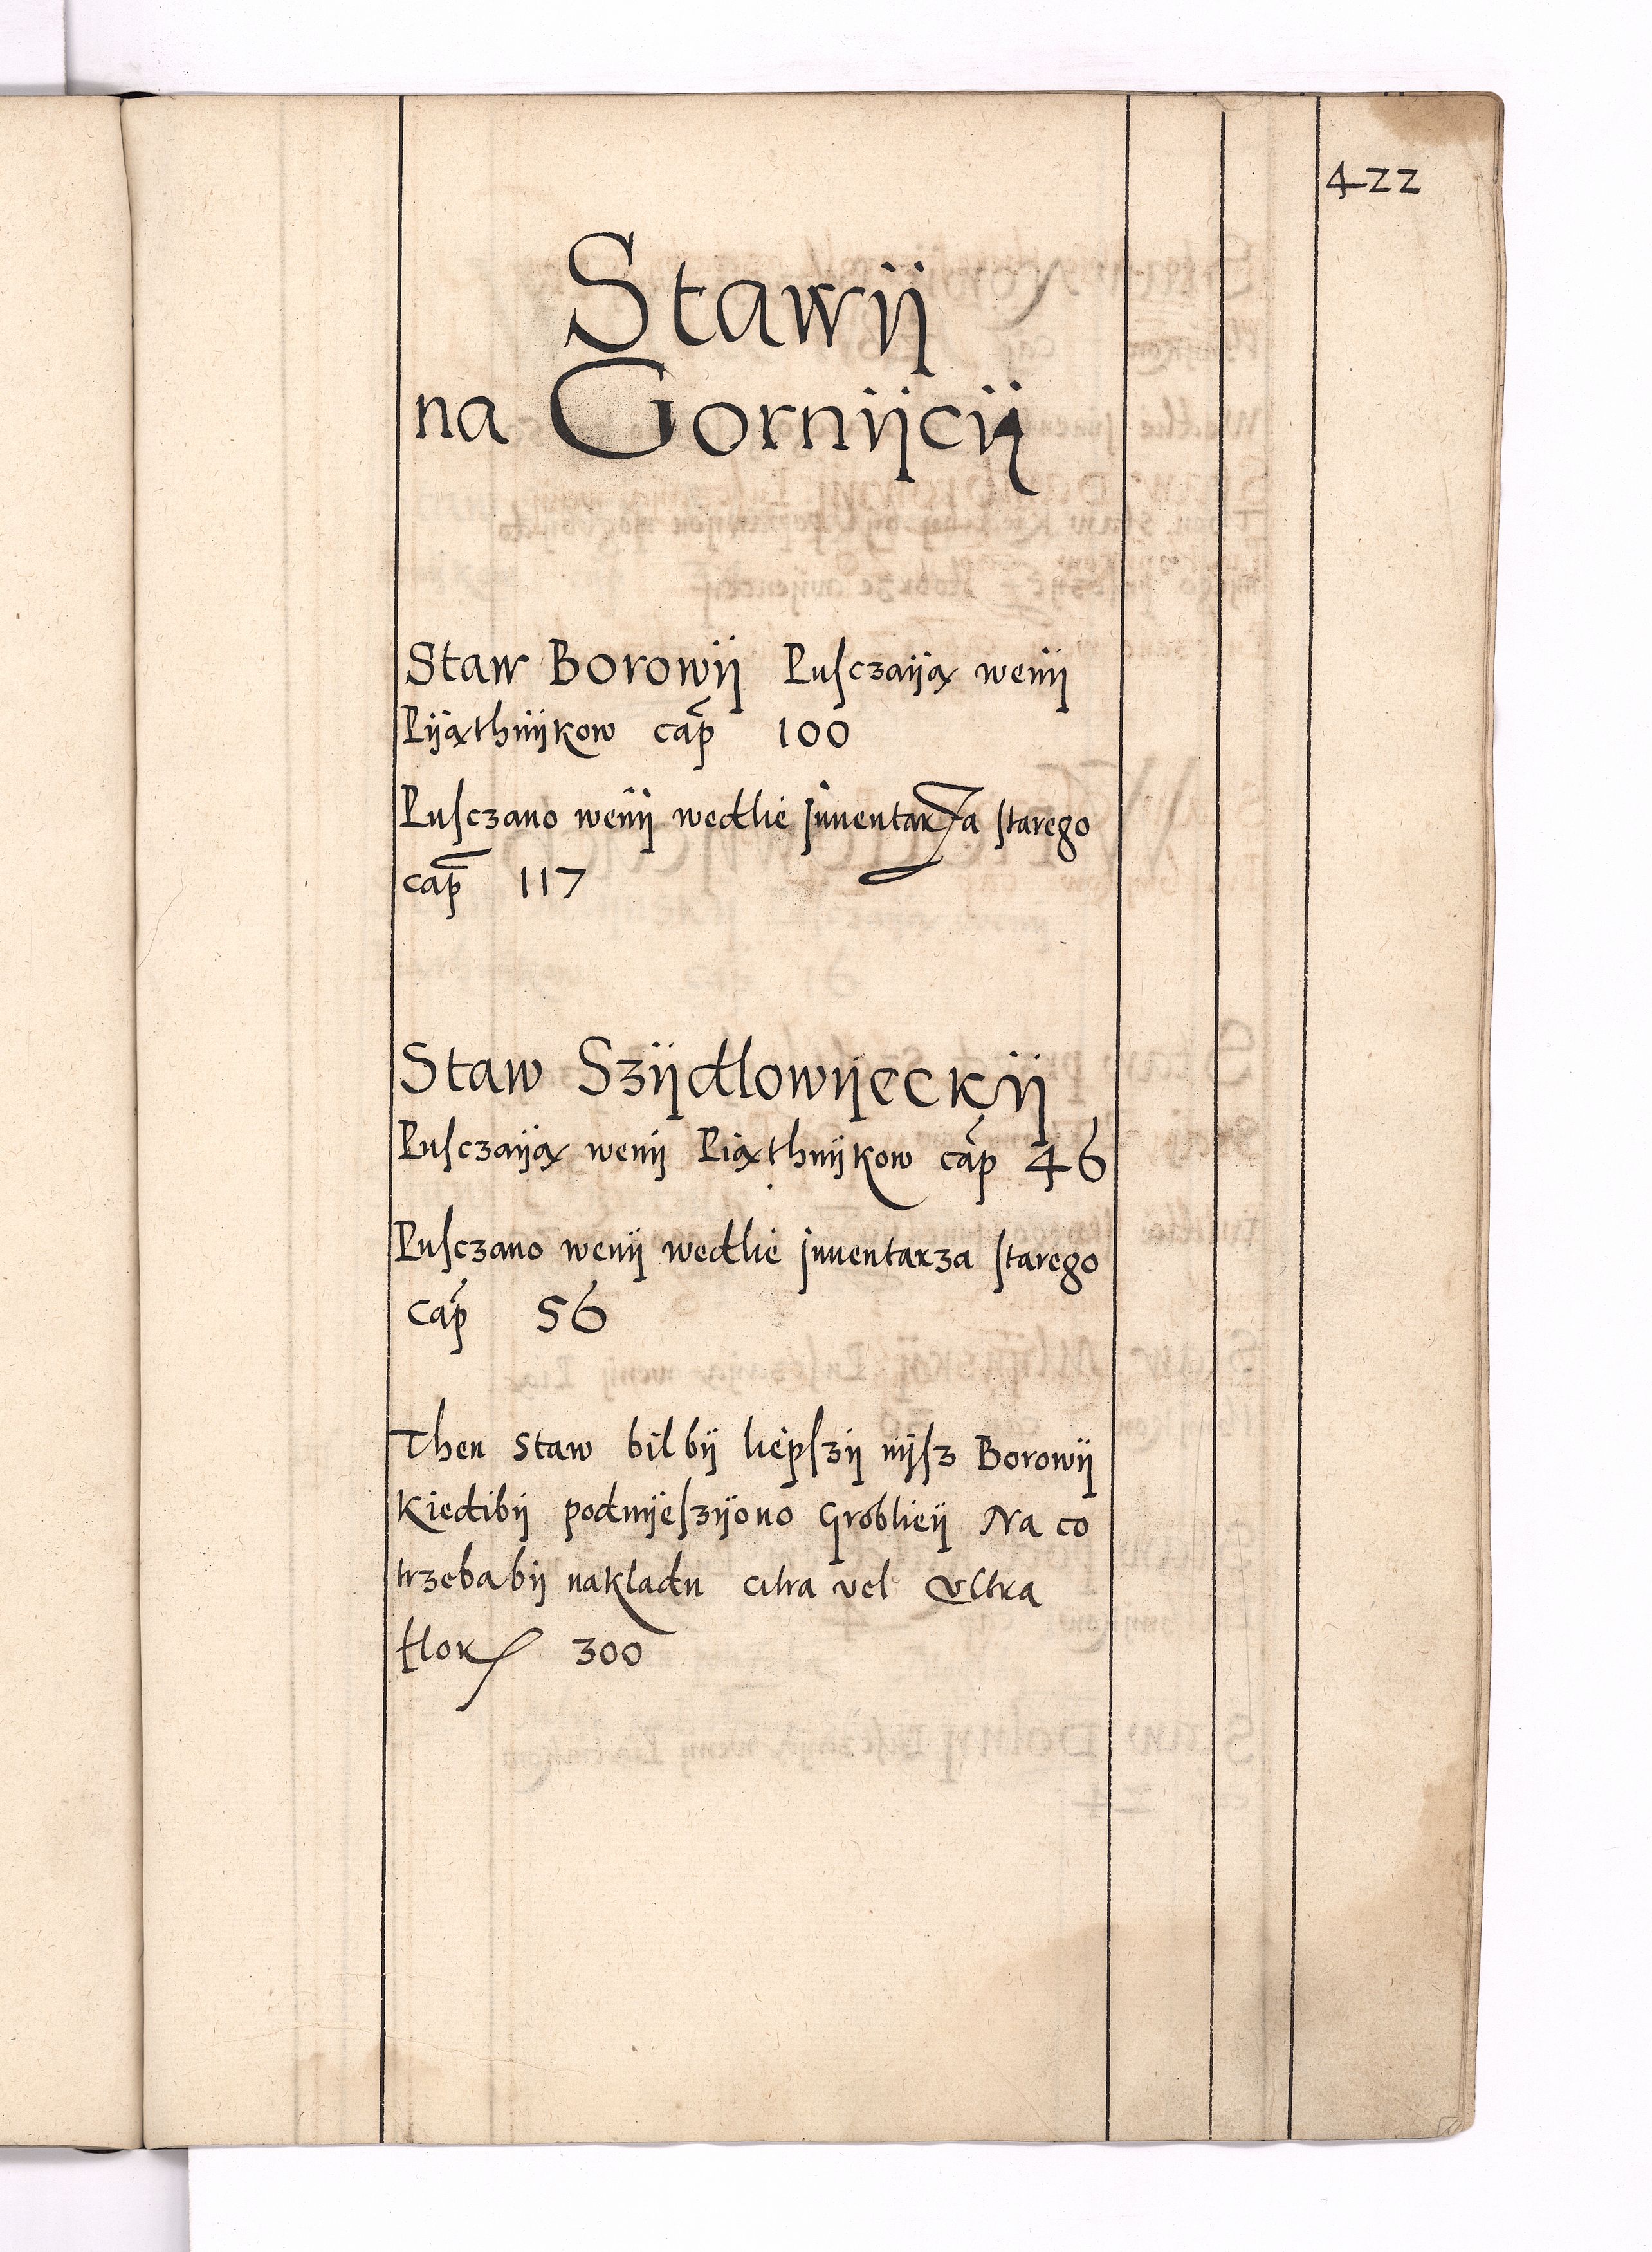 422
Stawÿ
na Gornÿcÿ
Staw Borowÿ Pusczaÿą wenÿ
Pÿąthnÿkow cap̃ 100
Pusczano wenÿ wedlie jnuentarza starego
cap̃ 117
Staw Szÿdlowÿeckÿ
Pusczaÿą wenÿ Piąthnÿkow cap̃ 46
Pusczano wenÿ wedlie jnuentarza starego
cap̃ 56
Then staw bil bÿ liepszÿ nÿsz Borowÿ
Kiedibÿ podwÿeszÿono Groblieÿ Na co
trzeba bÿ nakladu citra vel Vltra
flor 300